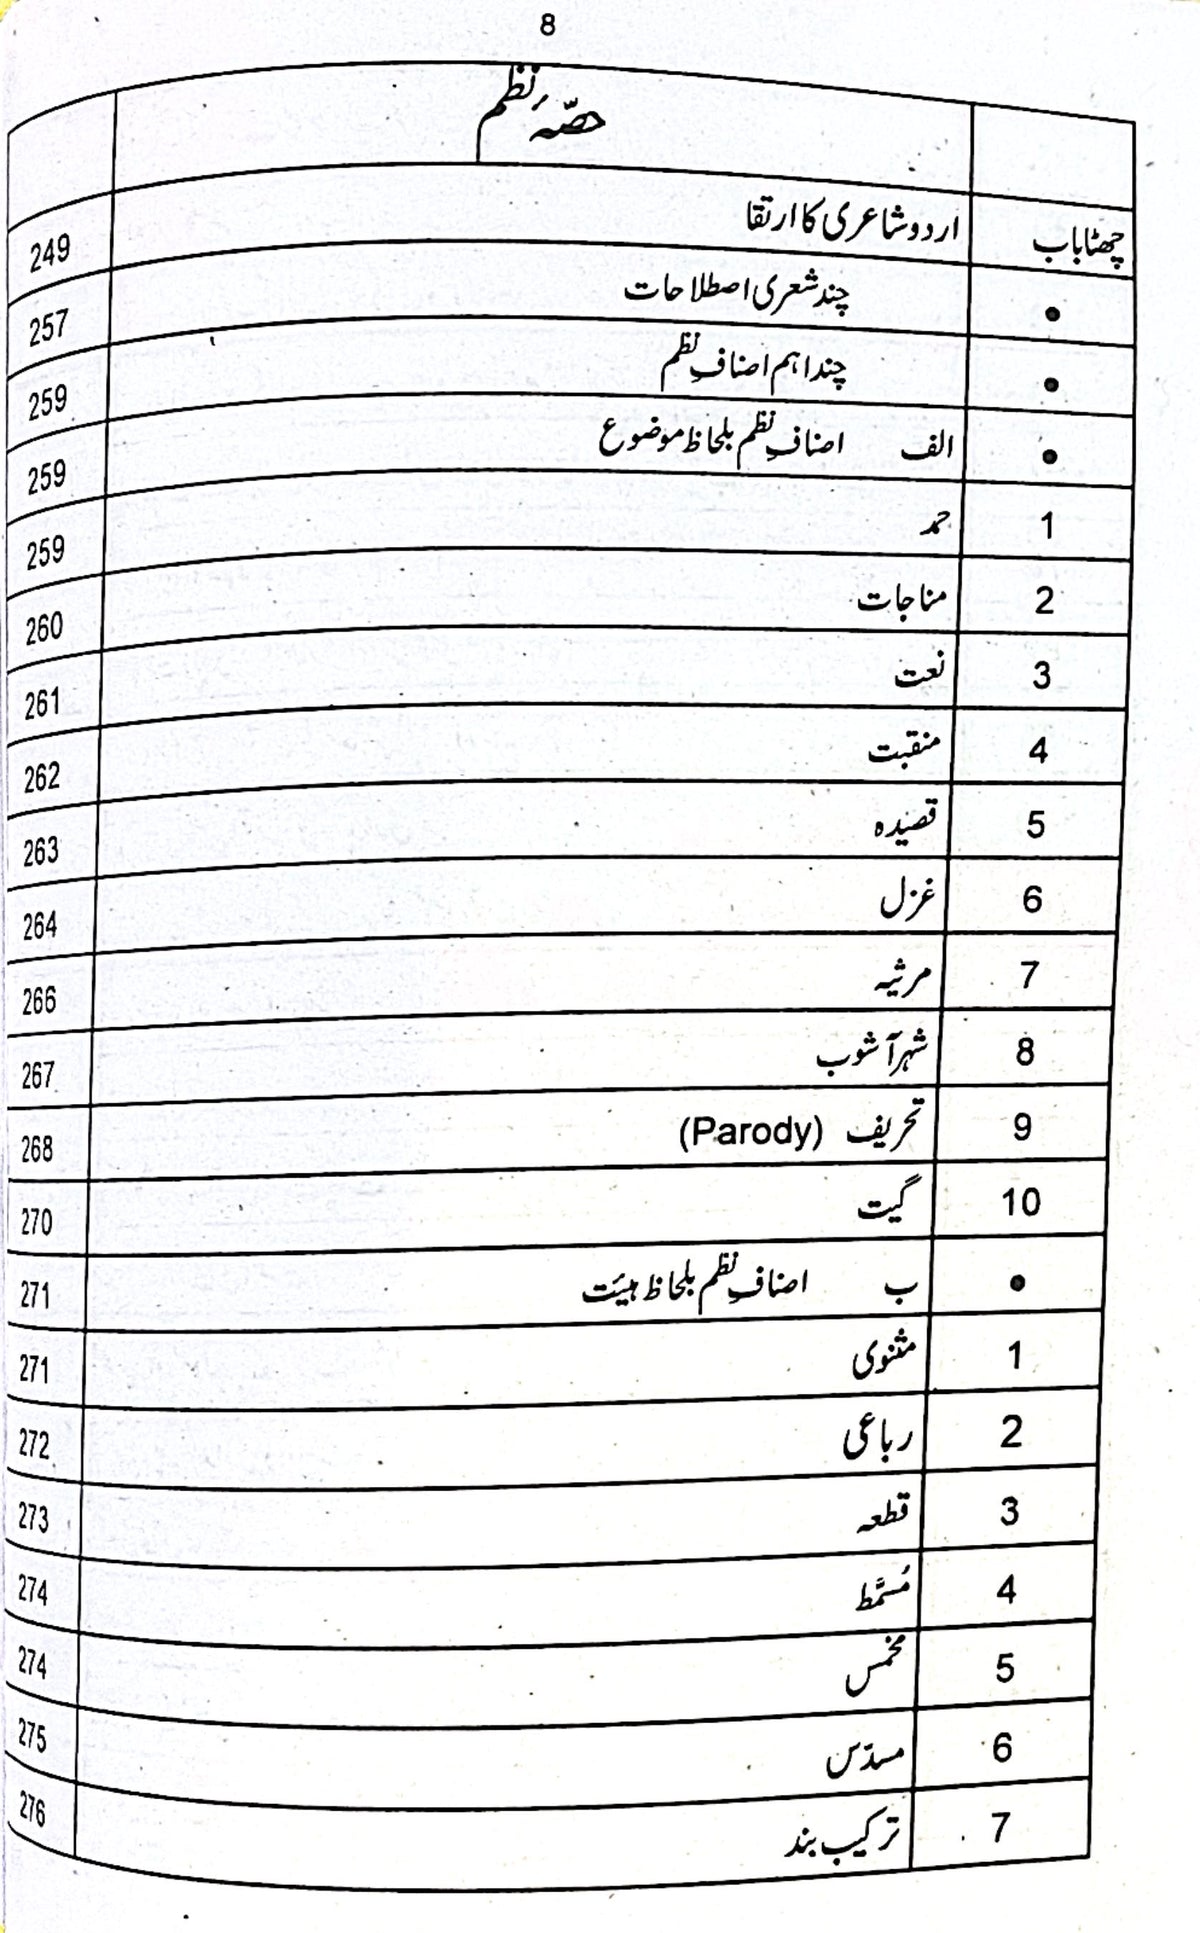 8
حصّۂ نظم
چھٹا باب اردو شاعری کا ارتقا 249
• چند شعری اصطلاحات 257
• چند اہم اصنافِ نظم 259
• الف اصنافِ نظم بلحاظ موضوع 259
1 حمد 259
2 مناجات 260
3 نعت 261
4 منقبت 262
5 قصیدہ 263
6 غزل 264
7 مرثیہ 266
8 شہر آشوب 267
9 تحریف (Parody) 268
10 گیت 270
• ب اصنافِ نظم بلحاظ ہیئت 271
1 مثنوی 271
2 رباعی 272
3 قطعہ 273
4 مُسمَّط 274
5 مخمس 274
6 مسدّس 275
7 ترکیب بند 276